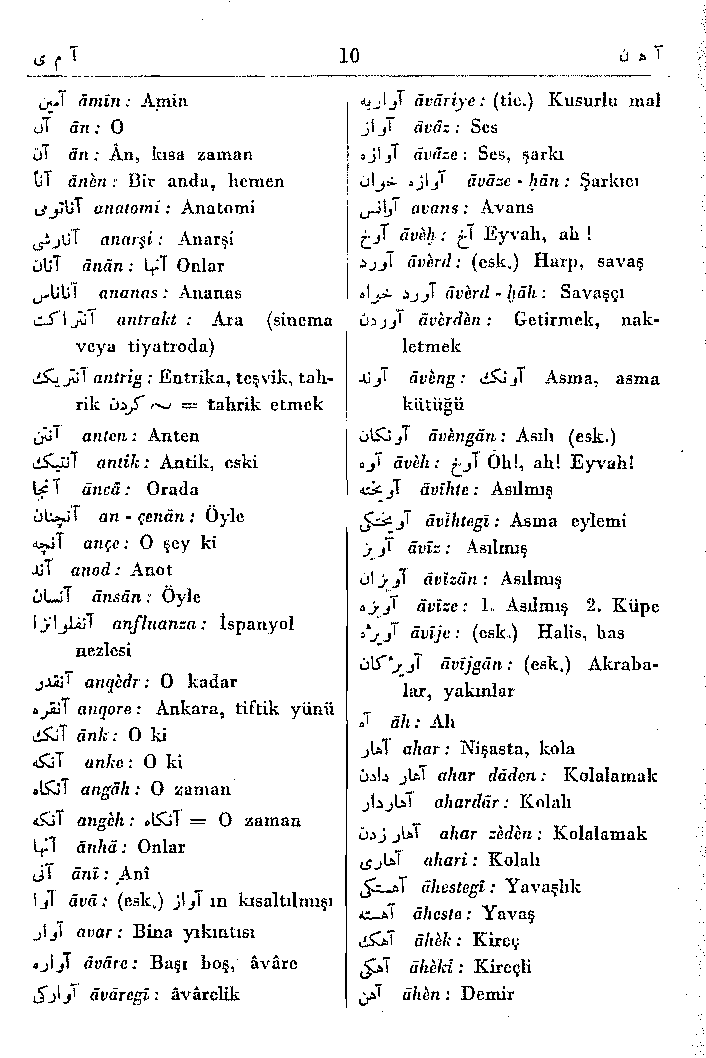 آ م ی 10 آ ه ن
آمین āmin : Amin
آن ān : O
آن ān : Ân, kısa zaman
آناً ānèn : Bir anda, hemen
آناتومی anatomi : Anatomi
آنارشی anarşi : Anarşi
آنان ānān : آنها Onlar
آناناس ananas : Ananas
آنتراکت antrakt : Ara (sinema
veya tiyatroda)
آنتریک antrig : Entrika, teşvik, tah-
rik کردن ~ = tahrik etmek
آنتن anten : Anten
آنتیک antik : Antik, eski
آنجا āncâ : Orada
آنچنان an - çenān : Öyle
آنچه ançe : O şey ki
آند anod : Anot
آنسان ānsān : Öyle
آنفلوانزا anfluanza : İspanyol
nezlesi
آنقدر anqèdr : O kadar
آنقره anqore : Ankara, tiftik yünü
آنک ānk : O ki
آنکه anke : O ki
آنگاه angāh : O zaman
آنگه angèh : آنگاه = O zaman
آنها ānhā : Onlar
آنی ānî : Anî
آوا āvā : (esk.) آواز ın kısaltılmışı
آوار avar : Bina yıkıntısı
آواره āvāre : Başı boş, âvâre
آوارگی āvāregī : âvârelik
آواریه āvāriye : (tic.) Kusurlu mal
آواز āvāz : Ses
آوازه āvāze : Ses, şarkı
آوازه خوان āvāze - ḫān : Şarkıcı
آوانس avans : Avans
آوخ āvèḫ : آخ Eyvah, ah !
آورد āvèrd : (esk.) Harp, savaş
آورد خواه āvèrd - ḫāh : Savaşçı
آوردن āvèrden : Getirmek, nak-
letmek
آوند āvèng : آونگ Asma, asma
kütüğü
آونگان āvèngān : Asılı (esk.)
آوه āvèh : آوخ Öh!, ah! Eyvah!
آویخته āvīhte : Asılmış
آویختگی āvīhtegī : Asma eylemi
آویز āvīz : Asılmış
آویزان āvīzān : Asılmış
آویزه āvīze : 1. Asılmış 2. Küpe
آویژه āvīje : (esk.) Halis, has
آویژگان āvījgān : (esk.) Akraba-
lar, yakınlar
آه āh : Ah
آهار ahar : Nişasta, kola
آهار دادن ahar dāden : Kolalamak
آهاردار ahardār : Kolalı
آهار زدن ahar zèdèn : Kolalamak
آهاری ahari : Kolalı
آهستگی āhestegī : Yavaşlık
آهسته āheste : Yavaş
آهک āhèk : Kireç
آهکی āhèkî : Kireçli
آهن āhèn : Demir